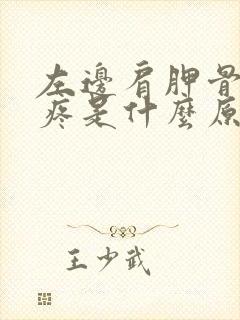 左邊肩胛骨
疼是什麼原
王少武